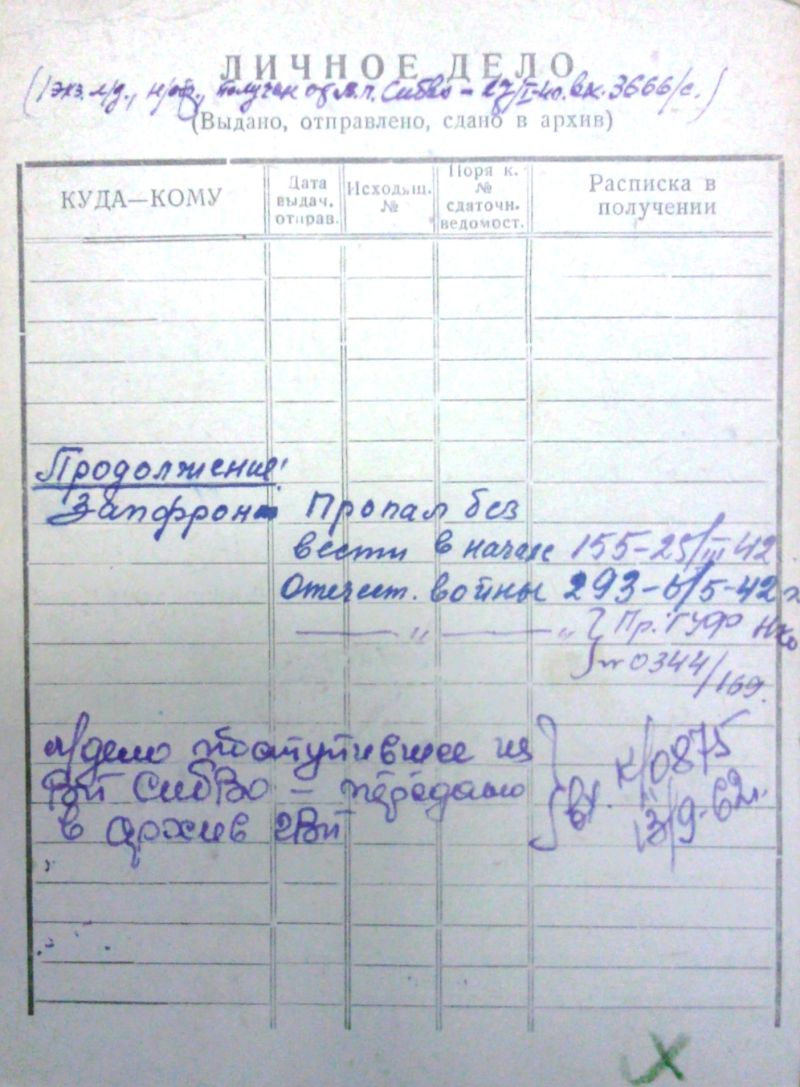 ЛИЧНОЕ ДЕЛО
(1 экз. л/д., получен от СибВо – 27/I-40. вх. 3666/с.)
(Выдано, отправлено, сдано в архив)
КУДА—КОМУ
Дата выдач. отправ.
Исходящ. №
Поряд к. № сдаточн. ведомост.
Расписка в получении
Продолжение:
Запфронт Пропал без
вести в начале 155-25/III 42
Отечест. войны 293-6/5-42г
—„— —„ } Пр. ГУФ НКО
№ 0344/169.
л/дело поступившее из
ВП СибВО – передано
в архив 2ВП
вх. к/0875
13/9-62г.